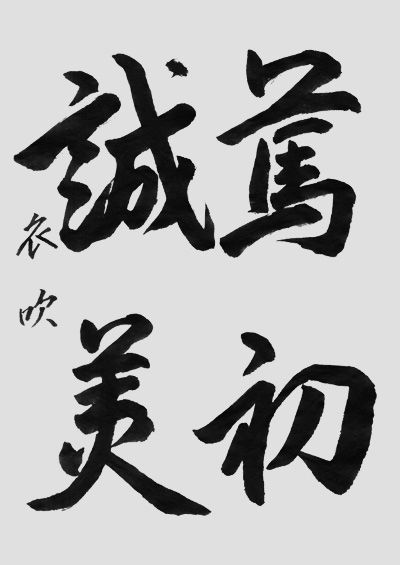 篤初
誠美
衣吹